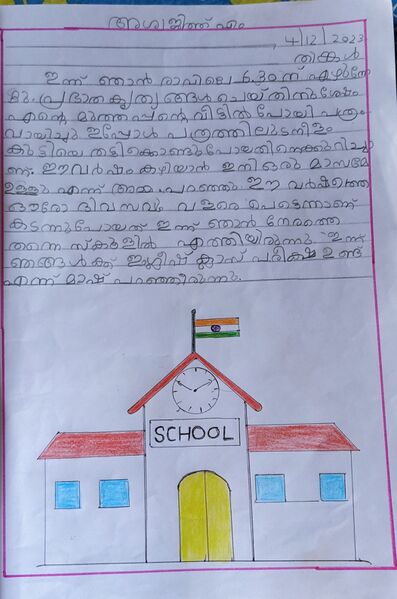 അശ്വജിത്ത് എം
4/12/2023
തിങ്കൾ
ഇന്ന് ഞാൻ രാവിലെ 6.30 ന് എഴുന്നേ
റ്റു. പ്രഭാത കൃത്യങ്ങൾ ചെയ്തതിനുശേഷം
എൻ്റെ മുത്തപ്പൻ്റെ വീട്ടിൽ പോയി പത്രം
വായിച്ചു ഇപ്പോൾ പത്രത്തിലുടനീളം
കുട്ടിയെ തട്ടിക്കൊണ്ടുപോയതിനെക്കുറിച്ചാ
ണ്. ഈ വർഷം കഴിയാൻ ഇനി ഒരു മാസമേ
ഉള്ളൂ എന്ന് അമ്മ പറഞ്ഞു. ഈ വർഷത്തെ
ഓരോ ദിവസവും വളരെ പെട്ടെന്നാണ്
കടന്നുപോയത് ഇന്ന് ഞാൻ നേരത്തെ
തന്നെ സ്കൂളിൽ എത്തിയിരുന്നു. ഇന്ന്
ഞങ്ങൾക്ക് ഇംഗ്ലീഷ് ക്ലാസ് പരീക്ഷ ഉണ്ട്
എന്ന് മാഷ് പറഞ്ഞിരുന്നു.
SCHOOL